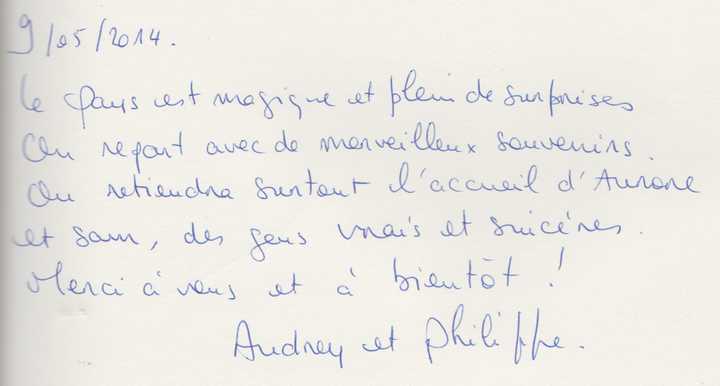 9/05/2014.
Le pays est magique et plein de surprises
On repart avec de merveilleux souvenirs.
On retiendra surtout l'accueil d'Aurore
et Sam, des gens vrais et sincères.
Merci à vous et à bientôt !
Audrey et Philippe.